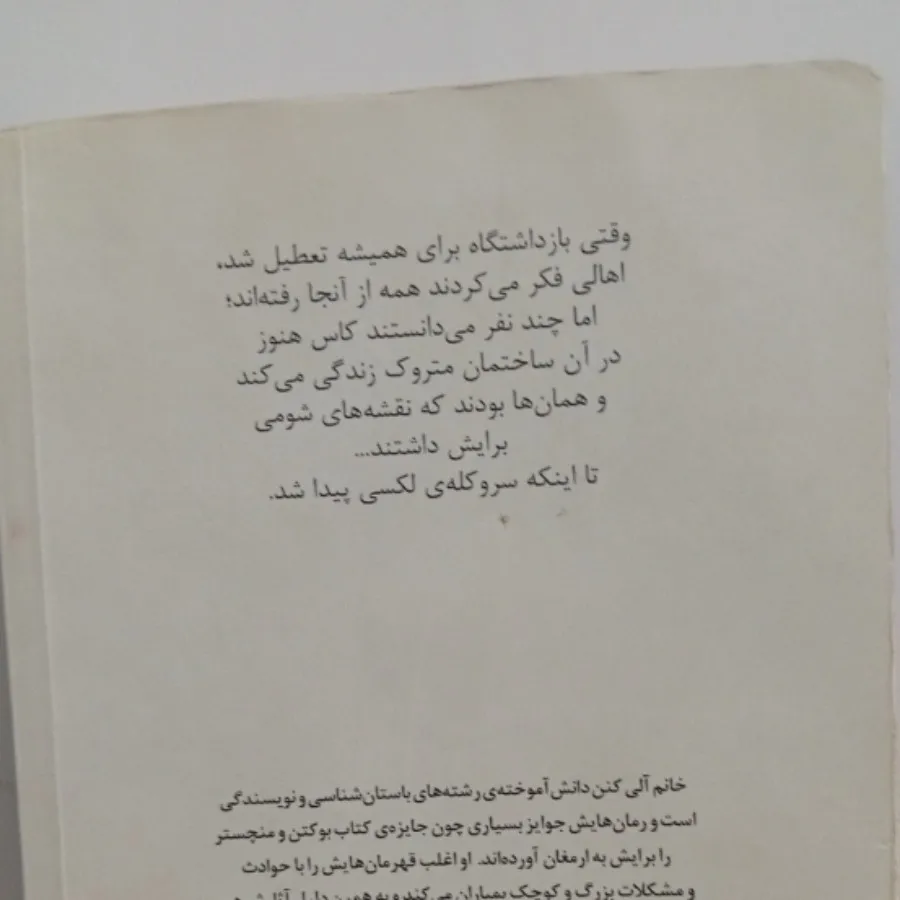 وقتی بازداشتگاه برای همیشه تعطیل شد،
اهالی فکر می‌کردند همه از آنجا رفته‌اند؛
اما چند نفر می‌دانستند کاس هنوز
در آن ساختمان متروک زندگی می‌کند
و همان‌ها بودند که نقشه‌های شومی
برایش داشتند...
تا اینکه سروکله‌ی لکسی پیدا شد.
خانم آلی کنن دانش‌آموخته‌ی رشته‌های باستان‌شناسی و نویسندگی
است و رمان‌هایش جوایز بسیاری چون جایزه‌ی کتاب بوکتن و منچستر
را برایش به ارمغان آورده‌اند. او اغلب قهرمان‌هایش را با حوادث
و مشکلات بزرگ و کوچک بمباران می‌کند و به همین دلیل